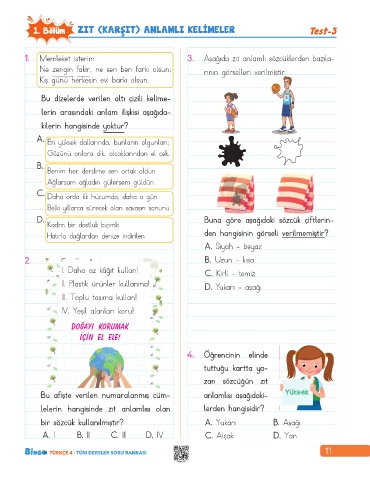 1. Bölüm
ZIT (KARŞIT) ANLAMLI KELİMELER
Test-3
1. Memleket isterim
Ne zengin fakir, ne sen ben farkı olsun;
Kış günü herkesin evi barkı olsun.
Bu dizelerde verilen altı çizili kelime-
lerin arasındaki anlam ilişkisi aşağıda-
kilerin hangisinde yoktur?
A. En yüksek dallarında, bunların olgunları;
Gözünü onlara dik, alçaklarından el çek.
B. Benim her derdime sen ortak oldun
Ağlarsam ağladın gülersem güldün
C. Daha orda ilk hücumda, daha o gün
Belki yıllarca sürecek olan savaşın sonunu
D. Kadim bir dostluk bizimki
Hatırla dağlardan denize indirilen
2.
I. Daha az kâğıt kullan!
II. Plastik ürünler kullanma!
III. Toplu taşıma kullan!
IV. Yeşil alanları koru!
DOĞAYI KORUMAK
İÇİN EL ELE!
Bu afişte verilen numaralanmış cüm-
lelerin hangisinde zıt anlamlısı olan
bir sözcük kullanılmıştır?
A. I B. II C. III D. IV
3. Aşağıda zıt anlamlı sözcüklerden bazıla-
rının görselleri verilmiştir.
Buna göre aşağıdaki sözcük çiftlerin-
den hangisinin görseli verilmemiştir?
A. Siyah - beyaz
B. Uzun - kısa
C. Kirli - temiz
D. Yukarı - aşağı
4. Öğrencinin elinde
tuttuğu kartta ya-
zan sözcüğün zıt
anlamlısı aşağıdaki-
lerden hangisidir?
Yüksek
A. Yukarı B. Aşağı
C. Alçak D. Yan
BİNGO TÜRKÇE 4 - TÜM DERSLER SORU BANKASI
11